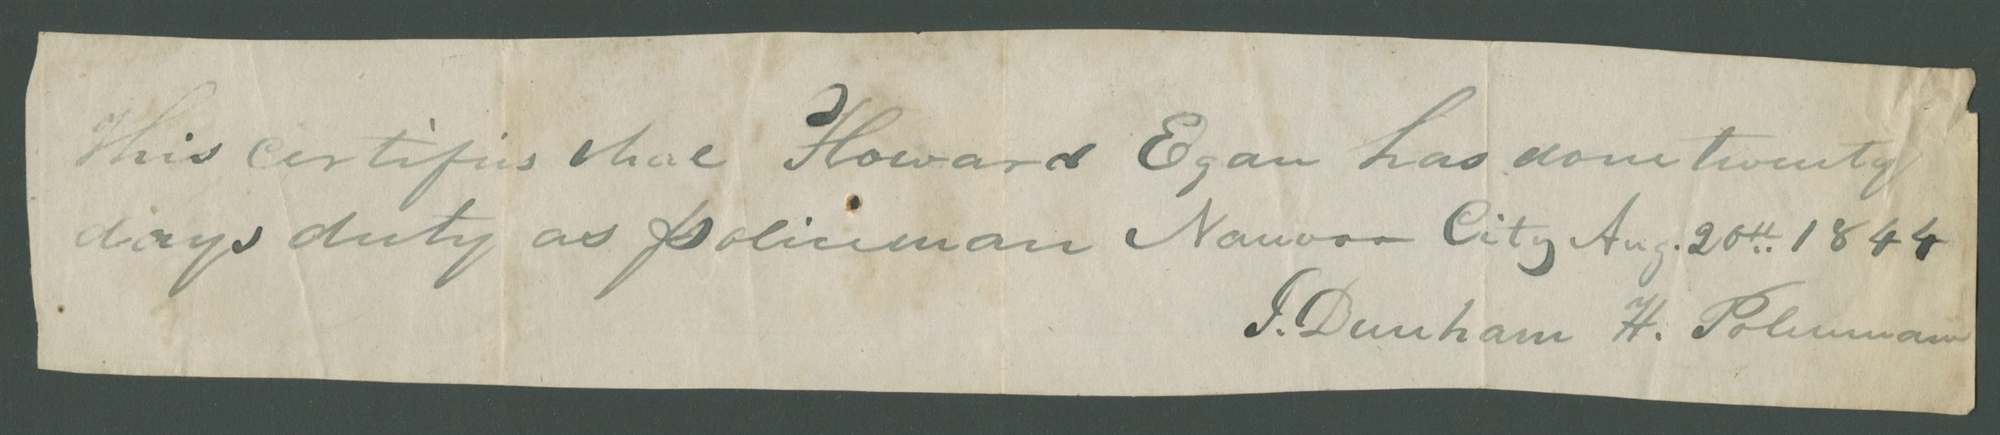 This certifies that Howard Egan has done twenty
days duty as policeman Nauvoo City Aug. 20th. 1844
J. Dunham H. Policeman